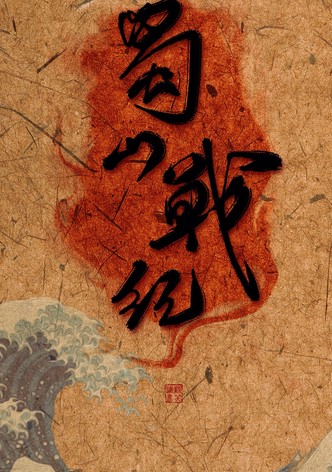 蜀山
戰紀